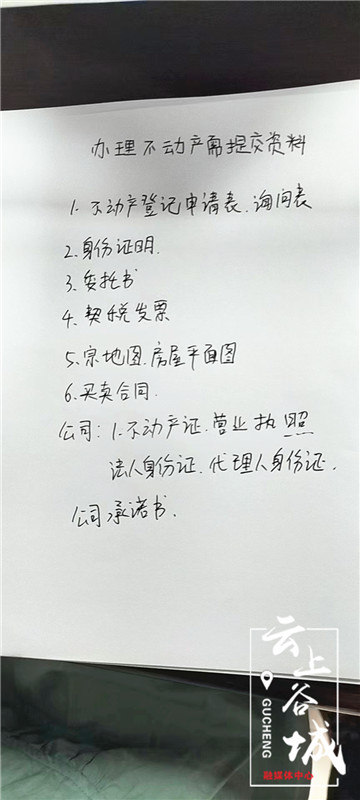 办理不动产需提交资料
1.不动产登记申请表.询问表
2.身份证明.
3.委托书
4.契税发票
5.宗地图.房屋平面图
6.买卖合同.
公司:1.不动产证.营业执照
法人身份证.代理人身份证.
公司承诺书.
云上谷城
GUCHENG
融媒体中心